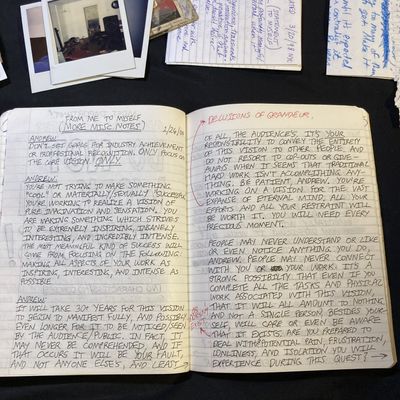 FROM ME TO MYSELF
(MORE MISC. NOTES)
ANDREW:
DON'T SET GOALS FOR INDUSTRY ACHIEVEMENT
OR PROFESSIONAL RECOGNITION. ONLY FOCUS ON
THE CORE VISION. ONLY.
ANDREW:
YOU'RE NOT TRYING TO MAKE SOMETHING
"COOL" OR MATERIALLY/SEXUALLY "SUCCESSFUL"
YOU'RE WORKING TO REALIZE A VISION OF
PURE IMAGINATION AND SENSATION. YOU
ARE MAKING SOMETHING WHICH STRIVES
TO BE EXTREMELY INSPIRING, INSANELY
INTERESTING, AND INCREDIBLY INTENSE.
THE MOST MEANINGFUL KIND OF SUCCESS WILL
COME FROM FOCUSING ON THE FOLLOWING:
MAKING ALL ASPECTS OF YOUR WORK AS
INSPIRING, INTERESTING, AND INTENSE AS
POSSIBLE.
ANDREW:
IT WILL TAKE 30+ YEARS FOR THIS VISION
TO BEGIN TO MANIFEST FULLY, AND POSSIBLY
EVEN LONGER FOR IT TO BE NOTICED/SEEN
BY THE AUDIENCE/PUBLIC. IN FACT, IT
MAY NEVER BE COMPREHENDED, AND IF
THAT OCCURS IT WILL BE YOUR FAULT,
AND NOT ANYONE ELSES, AND LEAST
DELUSIONS OF GRANDEUR,
OF ALL, THE AUDIENCE'S. IT'S YOUR
RESPONSIBILITY TO CONVEY THE ENTIRETY
OF THIS VISION TO OTHER PEOPLE AND
DO NOT RESORT TO COP-OUTS OR GIVE-
AWAYS WHEN IT SEEMS THAT TRADITIONAL
HARD WORK ISN'T ACCOMPLISHING ANY-
THING. BE PATIENT, ANDREW. YOU ARE
WORKING ON A VISION FOR THE VAST
EXPANSE OF ETERNAL MIND. ALL YOUR
EFFORTS AND ALL YOUR RESTRAINT WILL
BE WORTH IT. YOU WILL NEED EVERY
PRECIOUS MOMENT.
PEOPLE MAY NEVER UNDERSTAND OR LIKE
OR EVEN NOTICE ANYTHING YOU DO,
ANDREW. PEOPLE MAY NEVER CONNECT
WITH YOU OR YOUR WORK. IT'S A
STRONG POSSIBILITY THAT EVEN IF YOU
COMPLETE ALL THE TASKS AND PHYSICAL
WORK ASSOCIATED WITH THIS VISION,
THAT IT WILL ALL AMOUNT TO NOTHING
AND NOT A SINGLE PERSON, BESIDES YOUR-
SELF, WILL CARE OR EVEN BE AWARE
THAT IT EXISTS. ARE YOU PREPARED TO
DEAL WITH POTENTIAL PAIN, FRUSTRATION,
LONELINESS, AND ISOLATION YOU WILL
EXPERIENCE DURING THIS QUEST?